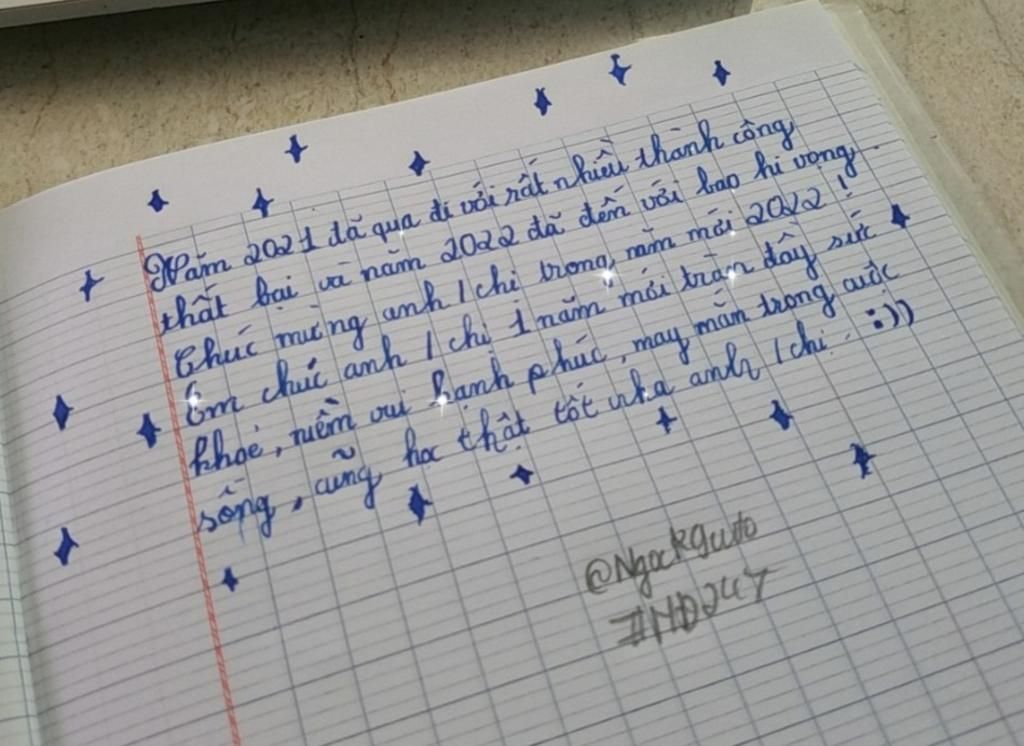 Năm 2021 đã qua đi với rất nhiều thành công
thất bại và năm 2022 đã đến với bao hi vọng.
Chúc mừng anh / chị trong năm mới 2022 !
Em chúc anh / chị 1 năm mới tràn đầy sức
khoẻ, niềm vui hạnh phúc, may mắn trong cuộc
sống, cũng học thật tốt nha anh / chị. :))
@Ngockguto
#MD247